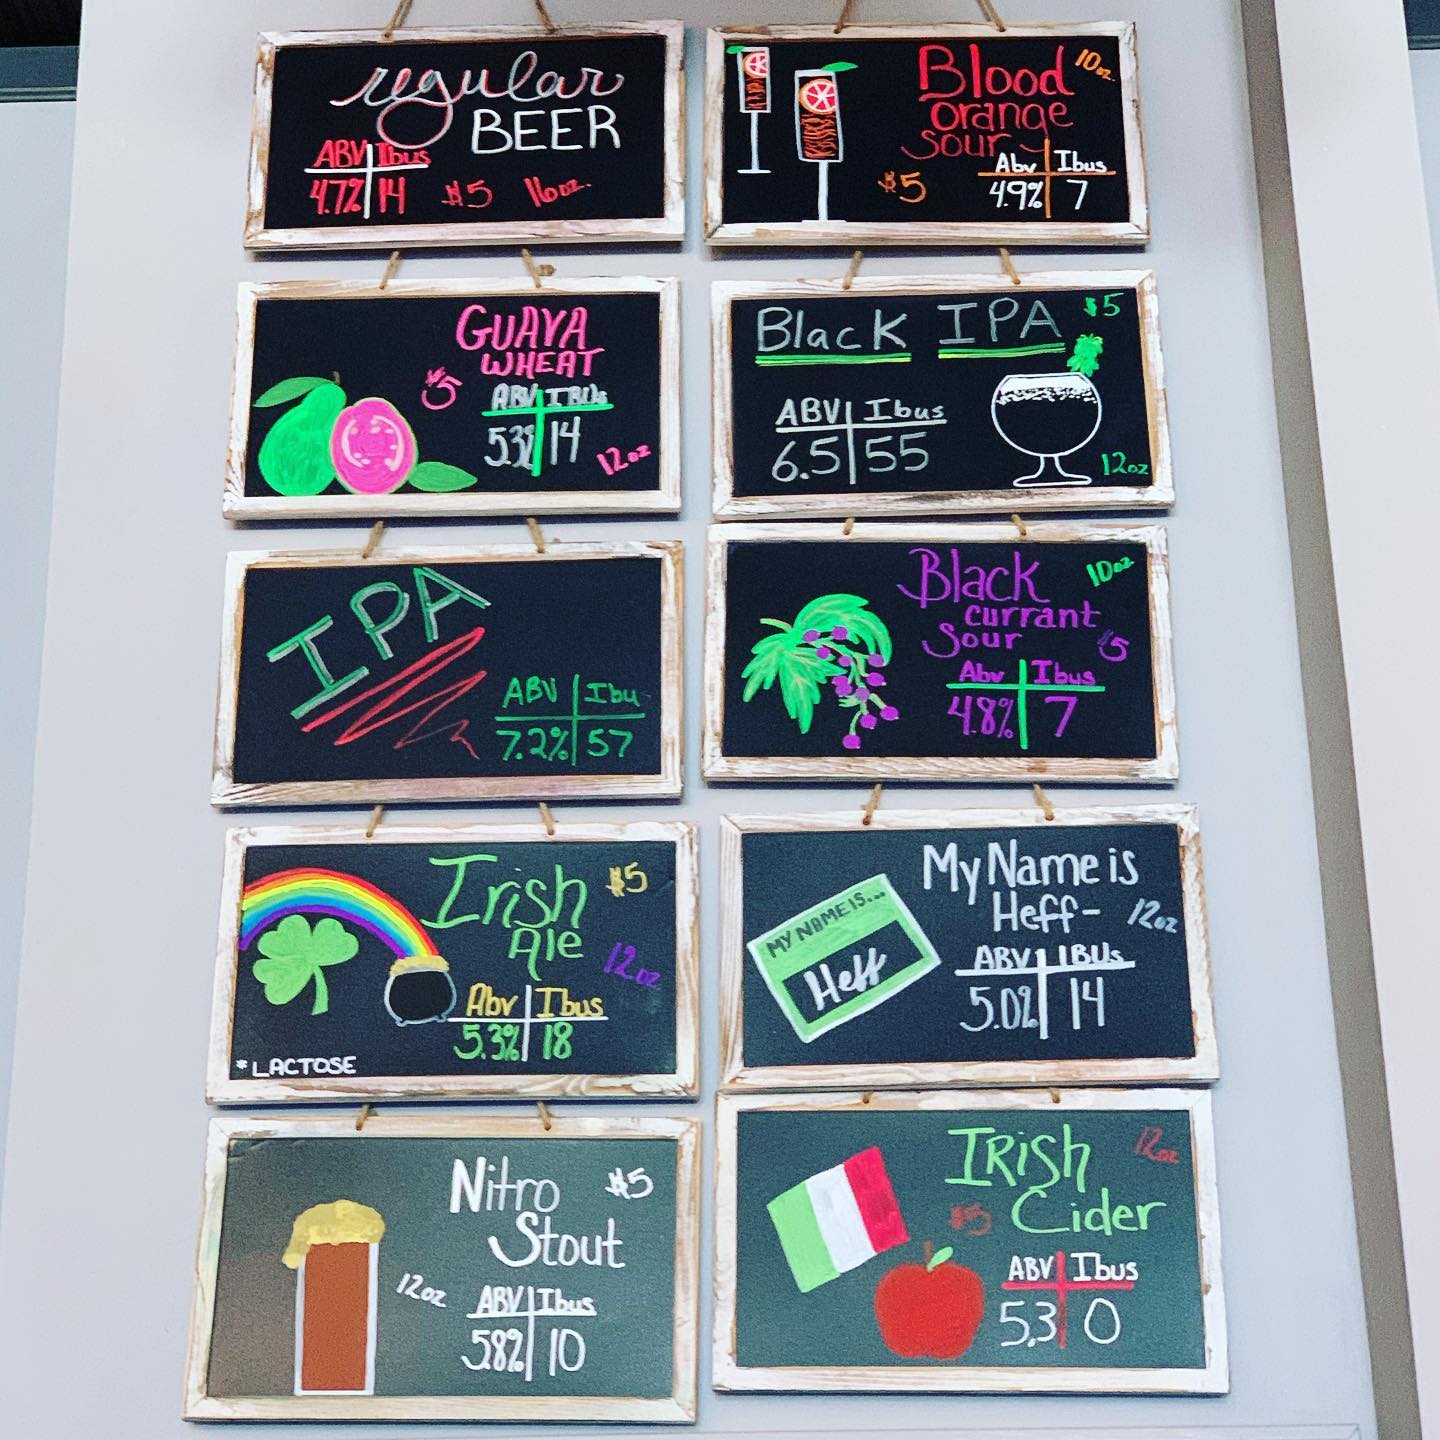 regular
BEER
ABV Ibus
4.7% 14 $5 16oz.
Blood 10oz.
orange
sour
$5 Abv Ibus
4.9% 7
GUAVA
WHEAT
$5 ABV IBUs
5.3% 14
12oz
Black IPA $5
ABV Ibus
6.5 55
12oz
IPA
ABV Ibu
7.2% 57
Black 10oz
currant
Sour $5
Abv Ibus
4.8% 7
Irish $5
Ale
12oz
Abv Ibus
5.3% 18
*LACTOSE
My Name is
Heff- 12oz
MY NAME IS...
Heff
ABV IBUs
5.0% 14
Nitro $5
Stout
12oz
ABV Ibus
5.8% 10
IRish 12oz
Cider
$5
ABV Ibus
5.3 0